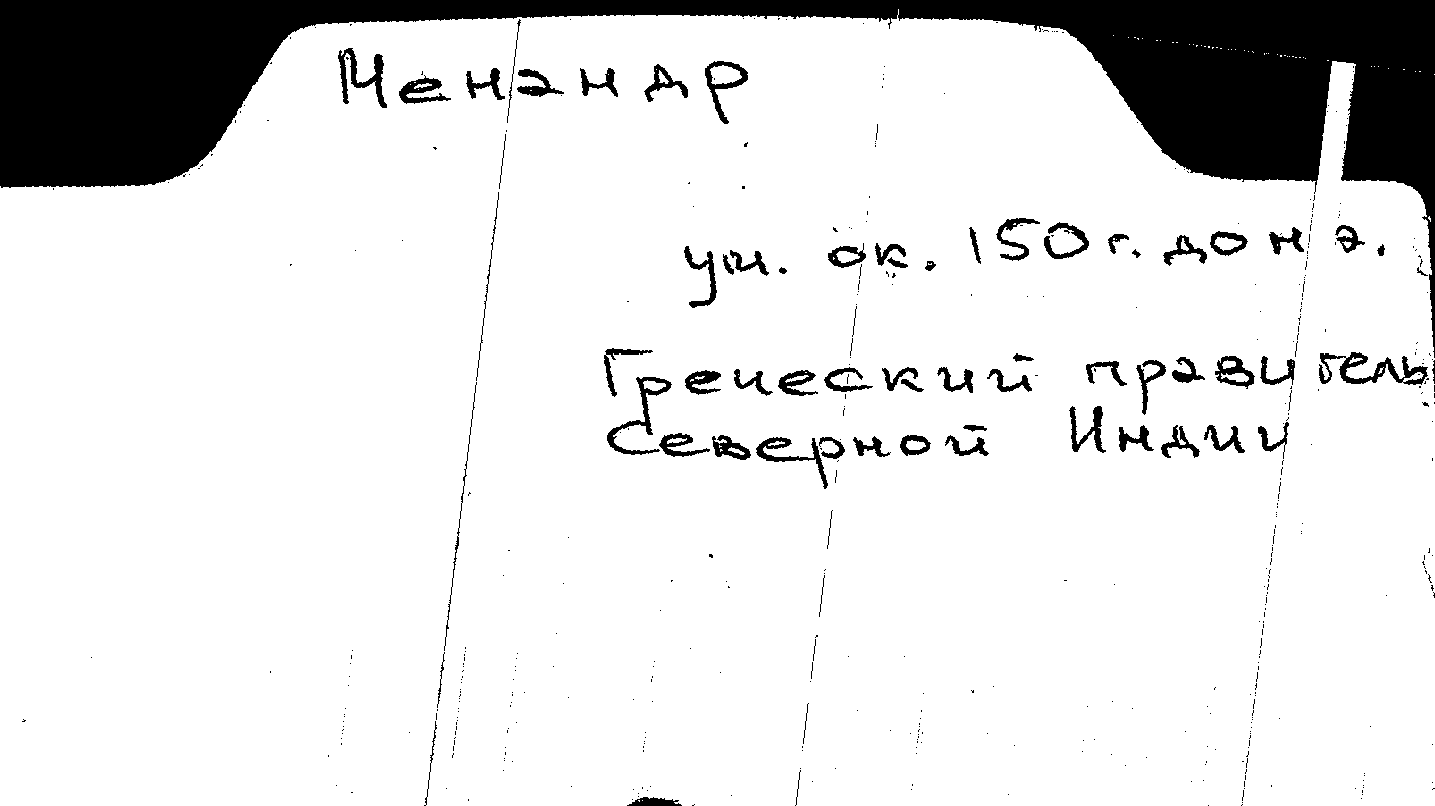 Менандр
ум. ок. 150 г. до н э.
Греческий правитель
Северной Индии